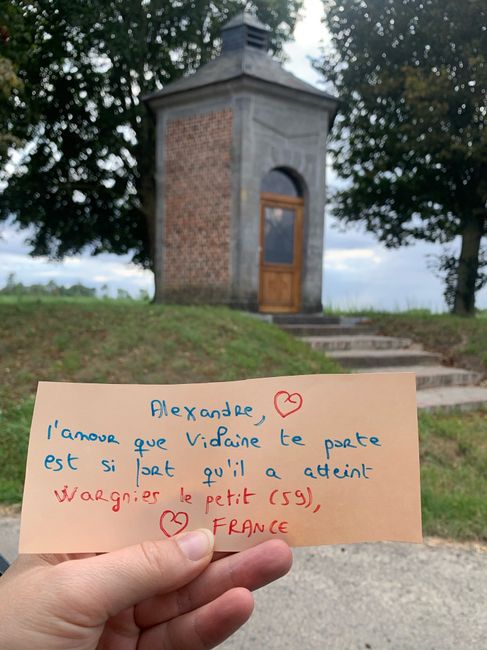 Alexandre,
l'amour que Vidaine te porte
est si fort qu'il a atteint
Wargnies le petit (59),
FRANCE